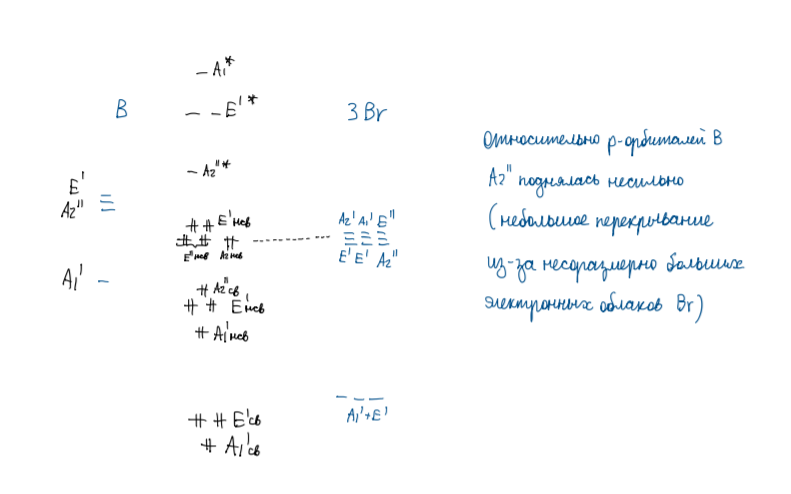 A₁*
E'*
B
3 Br
A₂"*
E'
A₂"
E'нсв
E"нсв A₂нсв
A₂' A₁' E"
E' E' A₂"
A₁'
A₂"св
E'нсв
A₁'нсв
A₁'+E'
E'св
A₁'св
Относительно p-орбиталей B
A₂" поднялась несильно
(небольшое перекрывание
из-за несоразмерно больших
электронных облаков Br)